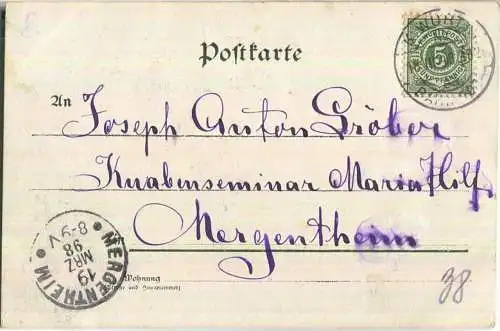 Postkarte
5
An Joseph Anton Gröber
Knabenseminar Maria Hilf,
Mergentheim
MERGENTHEIM
19
MRZ
98
8-9 N
Wohnung
38